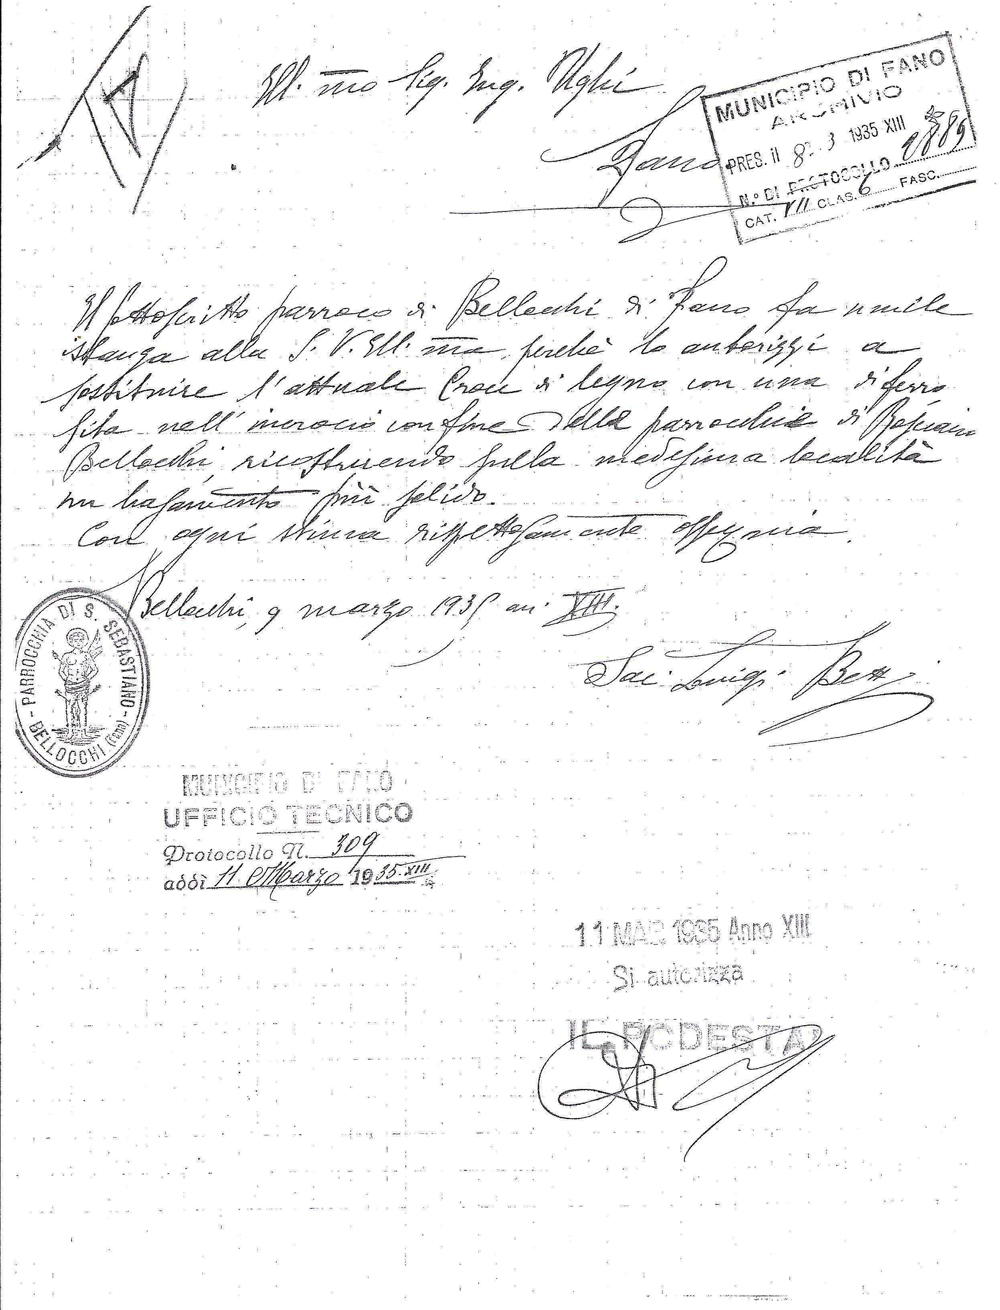 Ill.mo Sig. Ing. Ughi
Fano
MUNICIPIO DI FANO
ARCHIVIO
PRES. il 8 3 1935 XIII
N.º DI PROTOCOLLO 2889
CAT. VII CLAS. 6 FASC.
Il sottoscritto parroco di Bellocchi di Fano fa umile
istanza alla S. V. Ill.ma perchè lo autorizzi a
sostituire l'attuale Croce di legno con una di ferro
sita nell'incrocio confine delle parrocchie di
Bellocchi, ricostruendo sulla medesima località
un basamento più solido.
Con ogni stima rispettosamente ossequia.
Bellocchi, 9 marzo 1935 an. XIII.
Sac. Luigi Betti
PARROCCHIA DI S. SEBASTIANO
BELLOCCHI (Fano)
MUNICIPIO DI FANO
UFFICIO TECNICO
Protocollo N. 309
addì 11 Marzo 1935-XIII
11 MAR 1935 Anno XIII
Si autorizza
IL PODESTA'